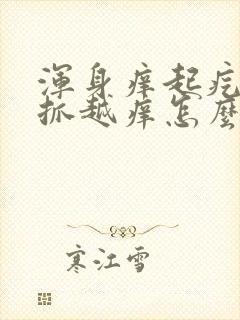 渾身痒起疙
抓越痒怎麼
寒江雪